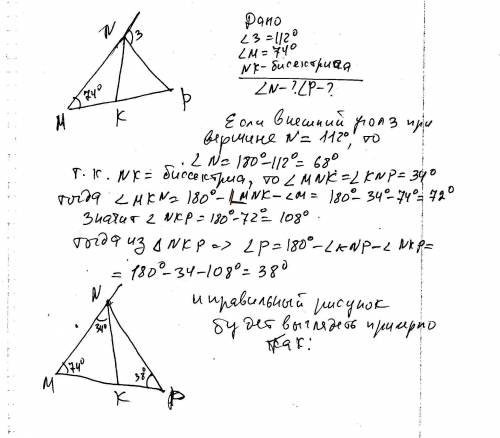 Дано
N 3
∠3 = 112°
∠M = 74°
NK - бисектриса
∠N - ? ∠P - ?
74°
M K P
Если внешний угол 3 при
вершине N = 112°, то
∠N = 180° - 112° = 68°
Т. К. NK = биссектриса, то ∠MNK = ∠KNP = 34°
тогда ∠MKN = 180° - ∠MNK - ∠M = 180° - 34° - 74° = 72°
Значит ∠NKP = 180° - 72° = 108°
тогда из △NKP => ∠P = 180° - ∠KNP - ∠NKP =
= 180° - 34 - 108° = 38°
N
и правильный рисунок
будет выглядеть примерно
так:
34°
74° 38°
M K P